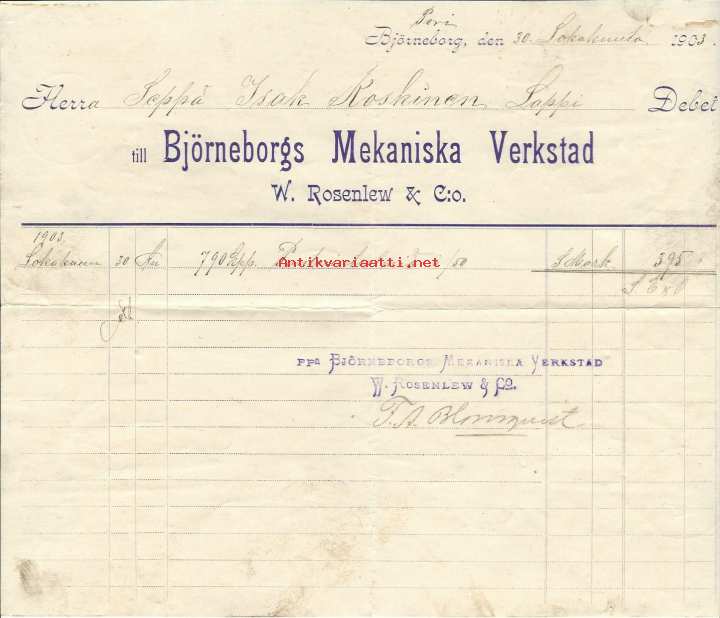 Pori
Björneborg, den 30 Lokakuuta 1903.
Herra Seppä Isak Koskinen Lappi Debet
till Björneborgs Mekaniska Verkstad
W. Rosenlew & C:o.
1903
Lokakuun 30 790 50 SMark 395
Antikvariaatti.net
S. E. & O.
ppa Björneborgs Mekaniska Verkstad
W. Rosenlew & Co.
F. A. Blomqvist